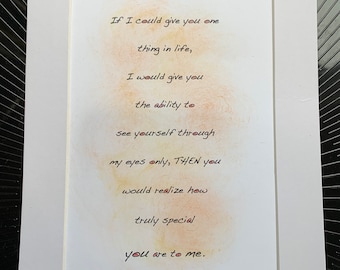 If I could give you one
thing in life,
I would give you
the ability to
see yourself through
my eyes only, THEN you
would realize how
truly special
you are to me.